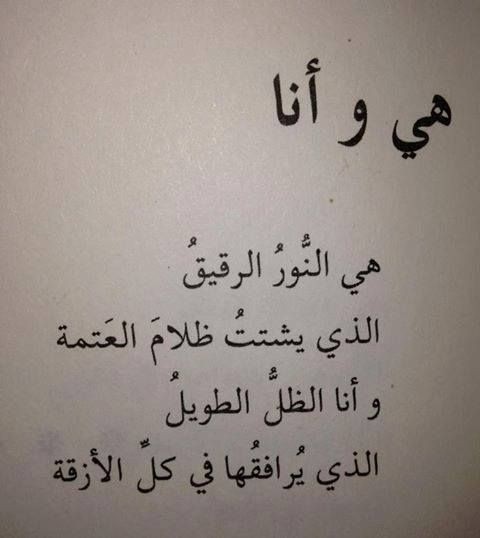 هي و أنا
هي النُّورُ الرقيقُ
الذي يشتتُ ظلامَ العَتمة
و أنا الظلُّ الطويلُ
الذي يُرافقُها في كلِّ الأزقة